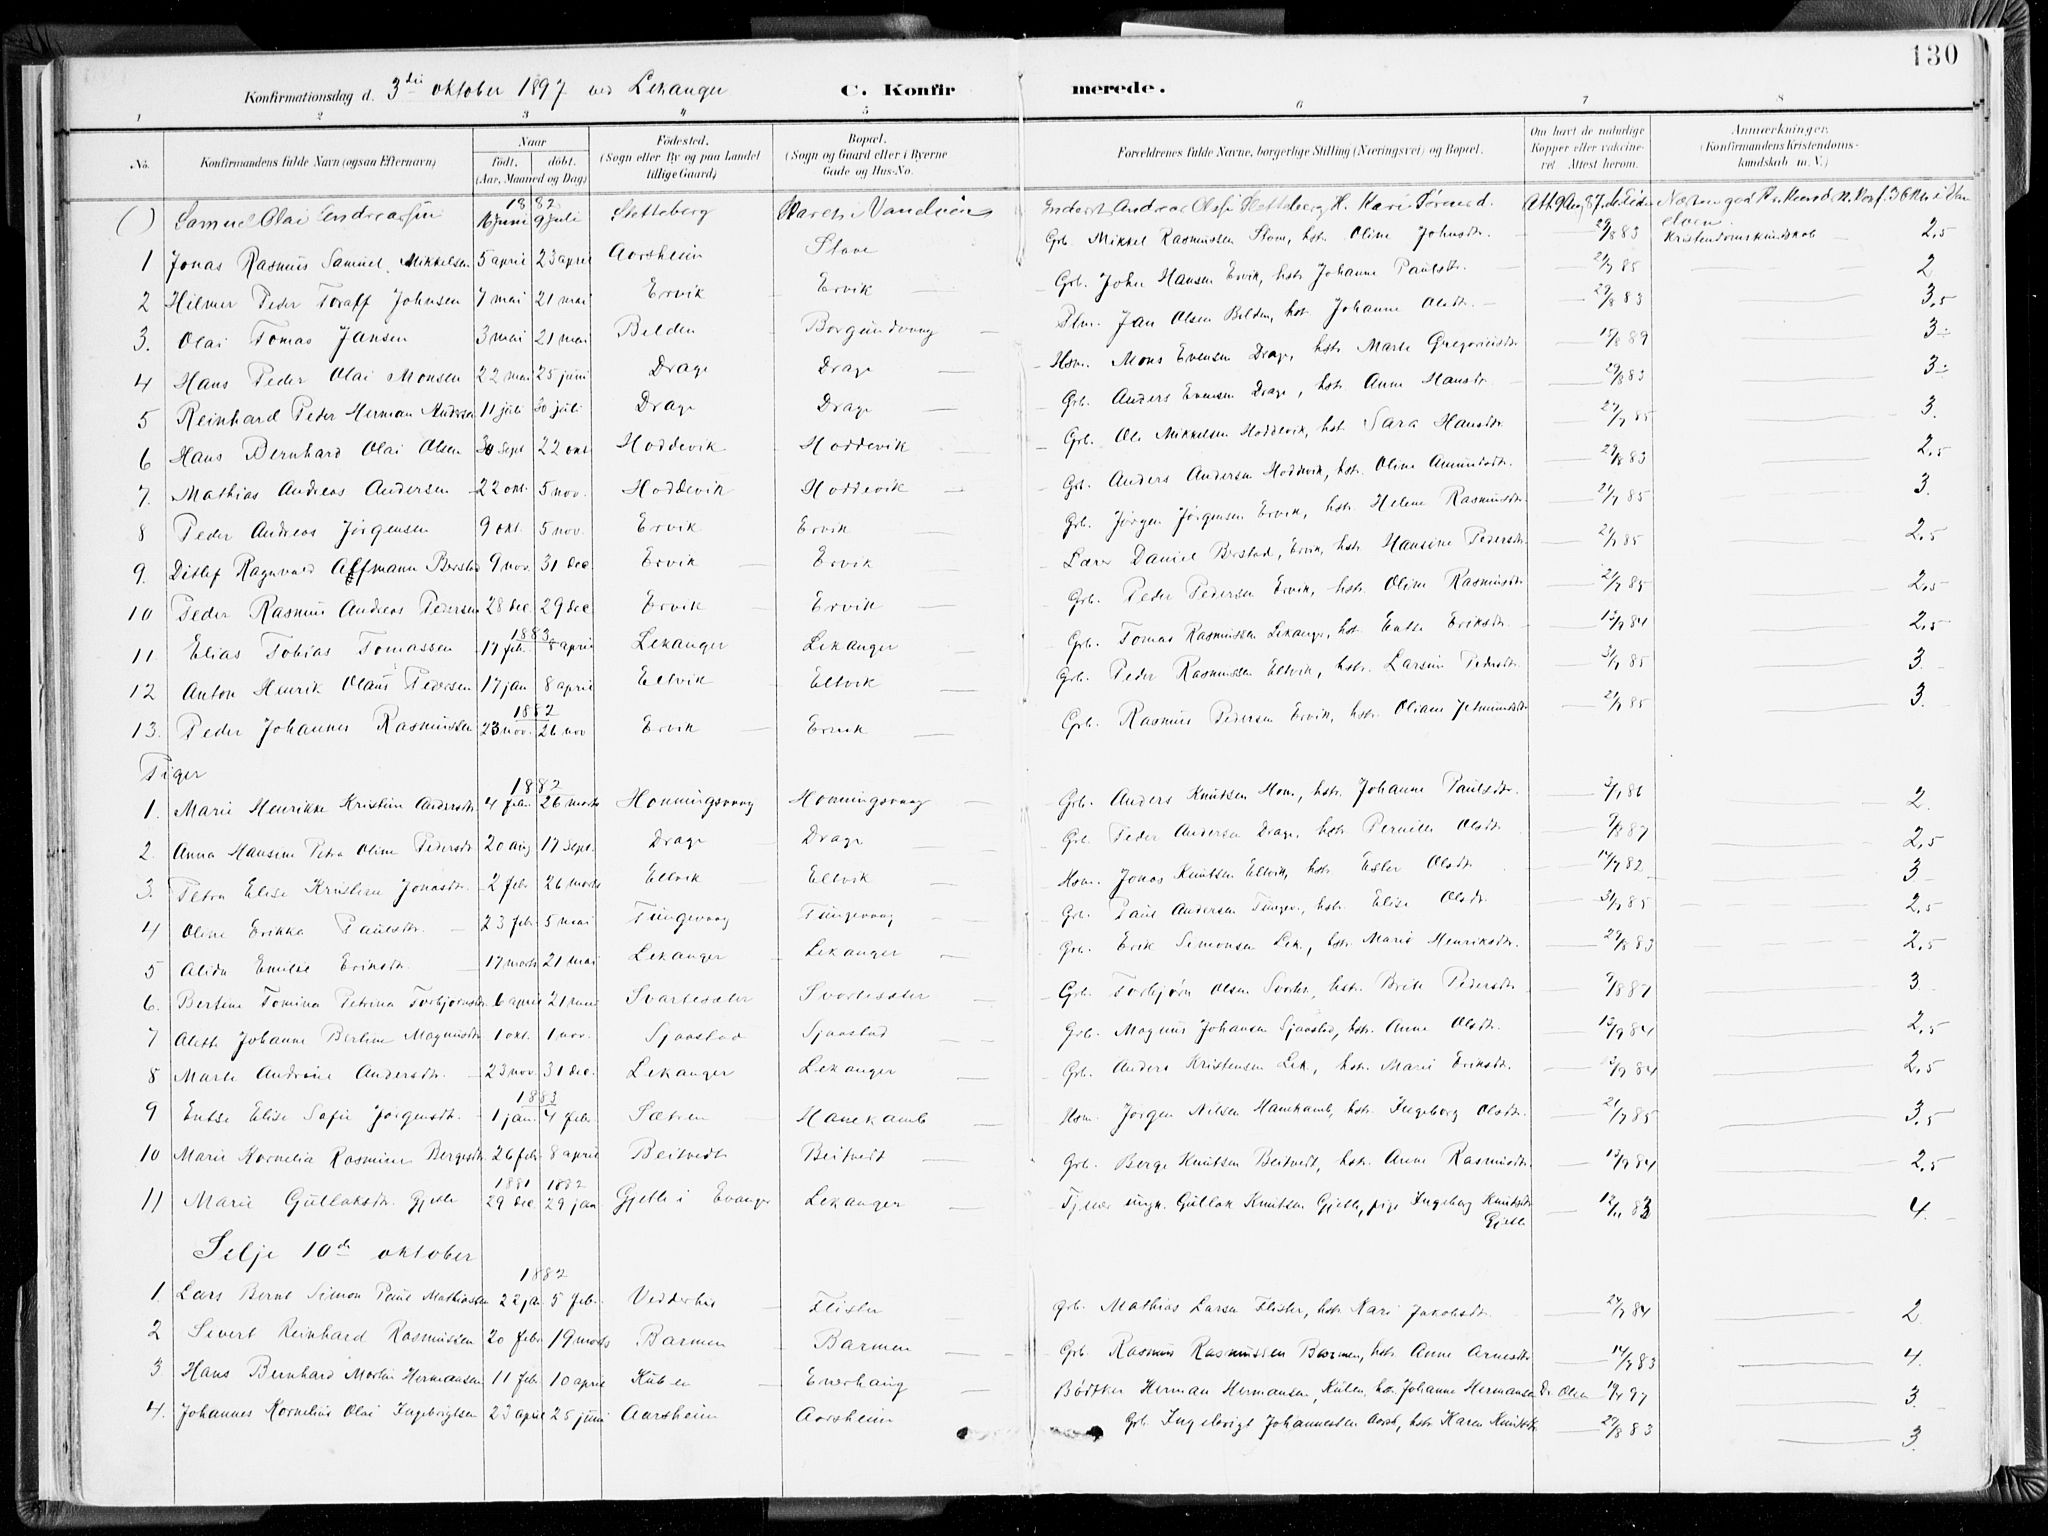 130
Konfirmationsdag d. 3die oktober 1897 ved Lekanger C. Konfirmerede.
1 2 3 4 5 6 7 8
No. Konfirmandens fulde Navn (ogsaa Efternavn) Naar født, døbt. (Aar, Maaned og Dag) Fødested. (Sogn eller By og paa Landet tillige Gaard) Bopæl. (Sogn og Gaard eller i Byerne Gade og Hus-No. Forældrenes fulde Navne, borgerlige Stilling (Næringsvei) og Bopæl. Om havt de naturlige Kopper eller vakcineret. Attest herom. Anmærkninger. (Konfirmandens Kristendomskundskab m. V.)
1882
( ) Samuel Olai 16 juni 9 juli
Kristendomskundskab
1 Jonas Rasmus Samuel Mikkelsen 5 april 23 april Aarsheim Stave Grb. Mikkel Rasmussen Stave, hstr. Oline Johnsdtr. 29/8 83 2,5
2 Hilmer Peder Toralf Johnsen 7 mai 21 mai Ervik Ervik Grb. John Hansen Ervik, hstr. Johanne Paulsdtr. 21/7 85 2
3. Olai Tomas Jansen 3 mai 21 mai Belden Borgundvaag Plm. Jan Olsen Belden, hstr. Johanne Olsdtr. 29/8 83 3,5
4 Hans Peder Olai Monsen 22 mai 25 juni Drage Drage Hsm. Mons Evensen Drage, hstr. Marte Gregoriusdtr. 15/8 89 3
5 Reinhard Peder Herman Andersen 11 juli 30 juli Drage Drage Grb. Anders Evensen Drage, hstr. Anne Hansdtr. 29/8 83 3
6 Hans Bernhard Olai Olsen 30 sept 22 okt Hoddevik Hoddevik Grb. Ole Mikkelsen Hoddevik, hstr. Sara Hansdtr. 21/7 85 3.
7. Mathias Andreas Andersen 22 okt. 5 nov. Hoddevik Hoddevik Grb. Anders Andersen Hoddevik, hstr. Oline Amundsdtr. 29/8 83 2,5
8 Peder Andreas Jørgensen 9 okt. 5 nov. Ervik Ervik Grb. Jørgen Jørgensen Ervik, hstr. Helene Rasmusdtr. 21/7 85 3.
9. Ditlef Ragnvald Alfmann Berstad 9 nov. 31 dec. Ervik Ervik Lærer Daniel Berstad, Ervik, hstr. Hansine Pedersdtr. 21/7 85 2,5
10 Peder Rasmus Andreas Pedersen 28 dec. 29 dec Ervik Ervik Grb. Peder Pedersen Ervik, hstr. Oline Rasmusdtr. 21/7 85 2,5
1883
11. Elias Tobias Tomassen 17 feb. 8 april Lekanger Lekanger Grb. Tomas Rasmussen Lekanger, hstr. Entse Eriksdtr. 12/9 84 2,5
12 Anton Henrik Olaus Pedersen 17 jan 8 april Eltvik Eltvik Grb. Peder Rasmussen Eltvik, hstr. Larsine Pedersdtr. 31/7 85 3.
1882
13. Peder Johannes Rasmussen 23 nov. 26 nov Ervik Ervik Grb. Rasmus Pedersen Ervik, hstr. Oliane Jetmundsdtr. 21/7 85 3.
Piger
1882
1. Marie Henrikke Kristine Andersdtr. 4 feb. 26 marts Honningsvaag Honningsvaag Grb. Anders Knutsen Hon., hstr. Johanne Paulsdtr. 2.
2. Anna Hansine Petra Oline Pedersdtr. 20 aug. 17 sept. Drage Drage Grb. Peder Andersen Drage, hstr. Pernille Olsdtr. 9/8 87 2,5
3. Petra Elise Kristine Jonasdtr. 2 febr. 26 marts Eltvik Eltvik Hsm. Jonas Knutsen Eltvik, hstr. Ester Olsdtr. 14/7 82 3
4 Oline Erikka Paulsdtr. 23 feb. 5 mai Tungevaag Tungevaag Grb. Paul Andersen Tungev., hstr. Elise Olsdtr. 31/7 85 2,5
5 Alida Emilie Eriksdtr. 17 marts 21 mai Lekanger Lekanger Grb. Erik Simonsen Lek., hstr. Marie Henriksdtr. 29/8 83 2,5
6. Bertine Tomina Petrina Torbjørnsdtr. 6 april 21 mai Svartesæter Svartesæter Grb. Torbjørn Olsen Svartes., hstr. Brite Pedersdtr. 9/8 87 3.
7 Alette Johanne Bertine Magnusdtr. 1 okt. 1 nov. Sjaastad Sjaastad Grb. Magnus Johansen Sjaastad, hstr. Anne Olsdtr. 12/9 84 2,5
8 Marte Andrine Andersdtr. 23 nov. 31 dec. Lekanger Lekanger Grb. Anders Kristensen Lek., hstr. Marie Eriksdtr. 12/9 84 2,5
1883
9 Entse Elise Sofie Jørgensdtr. 1 jan. 4 febr. Sætren Hanekamb Hsm. Jørgen Nilsen Hanekamb, hstr. Ingeborg Olsdtr. 21/7 85 3,5
10 Marie Kornelia Rasmine Bergesdtr. 26 febr. 8 april Beitvedt Beitvedt Grb. Berge Knutsen Beitvedt, hstr. Anne Rasmusdtr. 12/9 84 2,5
1881 1882
11 Marie Gullaksdtr. Gjelle 29 dec. 29 jan Gjelle i Evanger Lekanger Tjener ungk. Gullak Knutsen Gjelle, pige Ingeborg Knutsdtr. Gjelle 12/11 83 4.
Selje 10de oktober
1882
1. Lars Bernt Simon Paul Mathiassen 22 jan. 5 feb. Vedderhus Flister Grb. Mathias Larsen Flister, hstr. Kari Jakobsdtr. 24/7 84 2
2 Sivert Reinhard Rasmussen 20 febr. 19 marts Barmen Barmen Grb. Rasmus Rasmussen Barmen, hstr. Anne Arnesdtr. 14/7 83 4.
3 Hans Bernhard Martin Hermansen 11 febr. 10 april Kuben Enerhaug Bødtker Herman Hermansen, Kuben, hstr. Johanne Hermansen Dr. Olsen 19/4 97 3.
4. Johannes Kornelius Olai Ingebrigtsen 23 april 25 juni Aarsheim Aarsheim Grb. Ingebrigt Johannessen Aarsh., hstr. Karen Knutsdtr. 29/8 83 3.